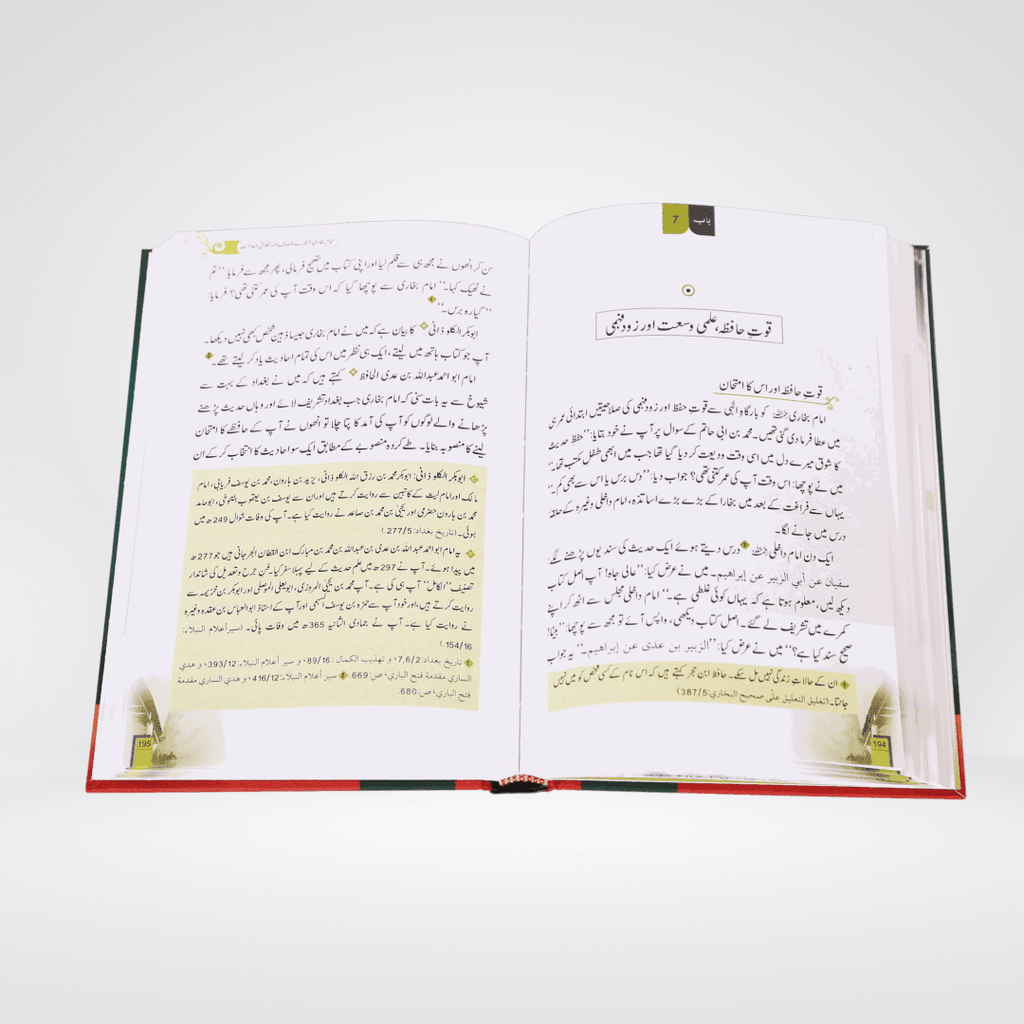 باب 7
قوتِ حافظہ، علمی وسعت اور زود فہمی
قوتِ حافظہ اور اس کا امتحان
امام بخاری رحمہ اللہ کو بارگاہِ الٰہی سے قوتِ حفظ اور زود فہمی کی صلاحیتیں ابتدائی عمر ہی
میں عطا فرما دی گئی تھیں۔ محمد بن ابی حاتم کے سوال پر آپ نے خود بتایا: ’’حفظ حدیث
کا شوق میرے دل میں اسی وقت ودیعت کر دیا گیا تھا جب میں ابھی طفل مکتب تھا۔‘‘
میں نے پوچھا: اس وقت آپ کی عمر کتنی تھی؟ جواب دیا: ’’دس برس یا اس سے بھی کم۔‘‘
یہاں سے فراغت کے بعد میں بخارا کے بڑے بڑے اساتذہ، امام داخلی وغیرہ کے حلقہ
درس میں جانے لگا۔
ایک دن امام داخلی رحمہ اللہ 1 درس دیتے ہوئے ایک حدیث کی سند یوں پڑھنے لگے:
سفیان عن أبي الزبیر عن إبراهیم۔ میں نے عرض کیا: ’’عالی جاہ! آپ اصل کتاب
دیکھ لیں، معلوم ہوتا ہے کہ یہاں کوئی غلطی ہے۔‘‘ امام داخلی مجلس سے اٹھ کر اپنے
کمرے میں تشریف لے گئے۔ اصل کتاب دیکھی، واپس آئے تو مجھ سے پوچھا: ’’بیٹا!
صحیح سند کیا ہے؟‘‘ میں نے عرض کیا: ’’الزبیر بن عدی عن إبراهیم۔‘‘ یہ جواب
1 ان کے حالاتِ زندگی نہیں مل سکے۔ حافظ ابن حجر کہتے ہیں کہ اس نام کے کسی شخص کو میں نہیں
جانتا۔ (تغلیق التعلیق علی صحیح البخاري: 387/5)
194
امام بخاری رحمہ اللہ کے اوصاف اور اخلاق و عادات
سن کر انھوں نے مجھ ہی سے قلم لیا اور اپنی کتاب میں تصحیح فرمائی، پھر مجھ سے فرمایا: ’’تم
نے ٹھیک کہا۔‘‘ امام بخاری سے پوچھا گیا کہ اس وقت آپ کی عمر کتنی تھی؟ فرمایا:
’’گیارہ برس۔‘‘ 1
ابوبکر الکلوذانی کا بیان ہے کہ میں نے امام بخاری جیسا ذہین شخص کبھی نہیں دیکھا۔
آپ جو کتاب ہاتھ میں لیتے، ایک ہی نظر میں اس کی تمام احادیث یاد کر لیتے تھے۔ 2
امام ابو احمد عبداللہ بن عدی الحافظ کہتے ہیں کہ میں نے بغداد کے بہت سے
شیوخ سے یہ بات سنی کہ امام بخاری جب بغداد تشریف لائے اور وہاں حدیث پڑھنے
پڑھانے والے لوگوں کو آپ کی آمد کا پتا چلا تو انھوں نے آپ کے حافظے کا امتحان
لینے کا منصوبہ بنایا۔ طے کردہ منصوبے کے مطابق ایک سو احادیث کا انتخاب کر کے ان
ابوبکر الکلوذانی: ابوبکر محمد بن رزق اللہ الکلوذانی، یزید بن ہارون، محمد بن یوسف فریابی، امام
مالک اور امام لیث کے کاتبین سے روایت کرتے ہیں اور ان سے یوسف بن یعقوب التنوخی، ابوحامد
محمد بن ہارون حضرمی اور یحییٰ بن محمد بن صاعد نے روایت کیا ہے۔ آپ کی وفات شوال 249ھ میں
ہوئی۔ (تاریخ بغداد: 277/5.)
یہ امام ابو احمد عبداللہ بن عدی بن عبداللہ بن محمد بن مبارک ابن القطان الجرجانی ہیں جو 277ھ
میں پیدا ہوئے۔ آپ نے 297ھ میں علم حدیث کے لیے پہلا سفر کیا۔ فن جرح و تعدیل کی شاندار
تصنیف ’’الکامل‘‘ آپ ہی کی ہے۔ آپ محمد بن یحییٰ المروزی، ابویعلی الموصلی اور ابوبکر بن خزیمہ سے
روایت کرتے ہیں، اور خود آپ سے حمزہ بن یوسف السہمی اور آپ کے استاذ ابوالعباس بن عقدہ وغیرہ
نے روایت کیا ہے۔ آپ نے جمادی الثانیہ 365ھ میں وفات پائی۔ (سیر أعلام النبلاء:
154/16.)
1 تاریخ بغداد: 7,6/2، و تهذیب الکمال: 89/16، و سیر أعلام النبلاء: 393/12، و هدي
الساري مقدمة فتح الباري، ص: 669. 2 سیر أعلام النبلاء: 416/12، و هدي الساري مقدمة
فتح الباري، ص: 680.
195